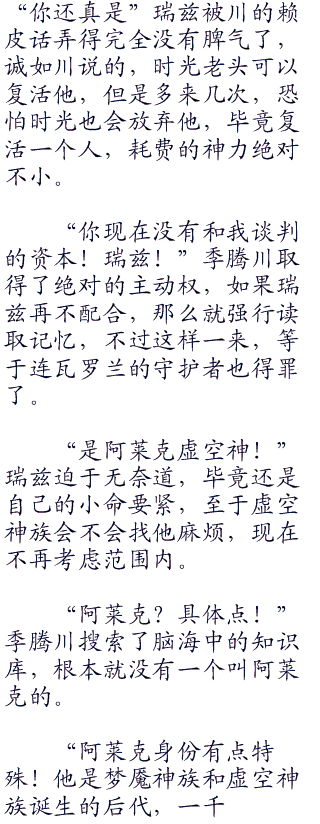 “你还真是”瑞兹被川的赖
皮话弄得完全没有脾气了，
诚如川说的，时光老头可以
复活他，但是多来几次，恐
怕时光也会放弃他，毕竟复
活一个人，耗费的神力绝对
不小。
“你现在没有和我谈判
的资本！瑞兹！”季腾川取
得了绝对的主动权，如果瑞
兹再不配合，那么就强行读
取记忆，不过这样一来，等
于连瓦罗兰的守护者也得罪
了。
“是阿莱克虚空神！”
瑞兹迫于无奈道，毕竟还是
自己的小命要紧，至于虚空
神族会不会找他麻烦，现在
不再考虑范围内。
“阿莱克？具体点！”
季腾川搜索了脑海中的知识
库，根本就没有一个叫阿莱
克的。
“阿莱克身份有点特
殊！他是梦魇神族和虚空神
族诞生的后代，一千